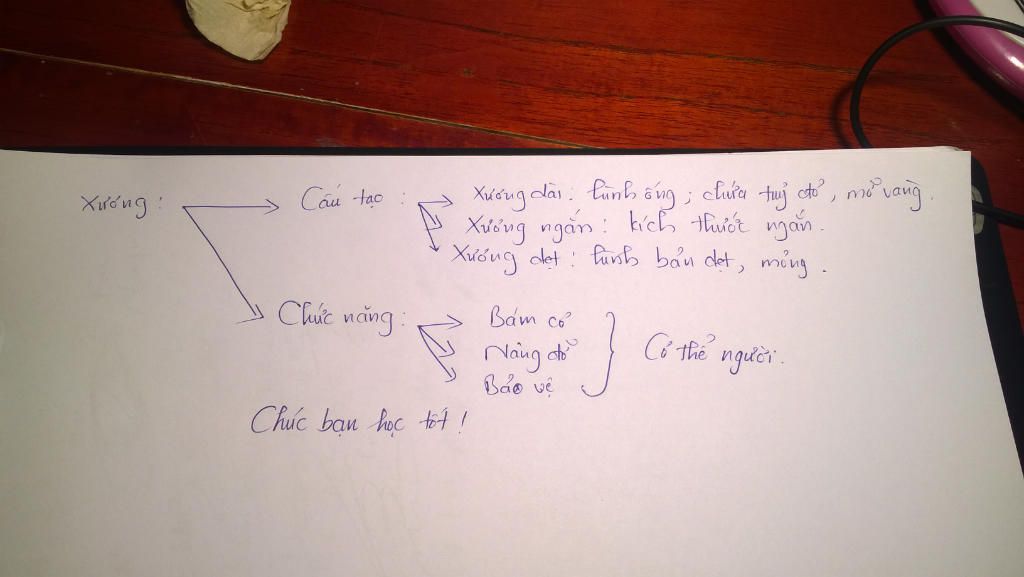 Xương : Cấu tạo : Xương dài : hình ống ; chứa tuỷ đỏ , mô vàng .
Xương ngắn : kích thước ngắn .
Xương dẹt : hình bản dẹt , mỏng .
Chức năng : Bám cơ
Nâng đỡ Cơ thể người .
Bảo vệ
Chúc bạn học tốt !